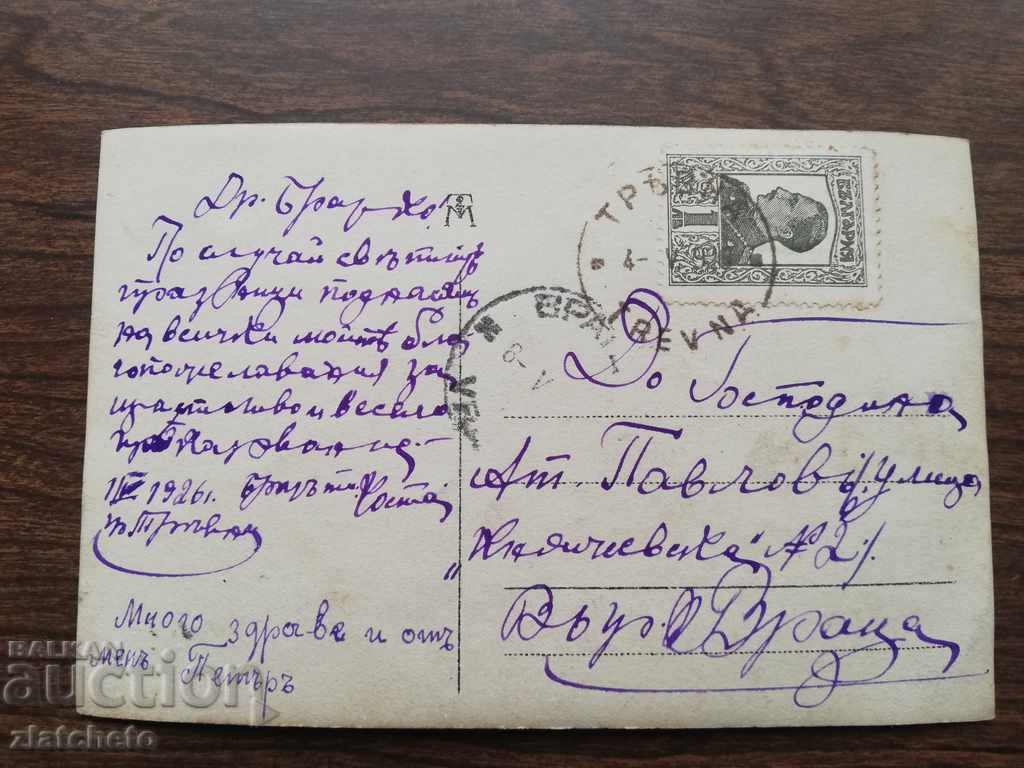 Др. Братко!
По случай светитѣ
празници поднасямъ
на всички моитѣ бла
гопожелавания за
щастливо и весело
прѣкарване.
IV 1926 г. Братъ ти Коста
гр Трѣвна
Много здраве и отъ
менъ Петъръ
ТРѢ
4-
TREVNA
ВРАЦ
БЪЛГАРИЯ
1
ЛВ
До Господина
Ат. Павловъ улица
„Княжевска" № 21.
Въ гр. Враца
BALKAN
auction
zlatcheto